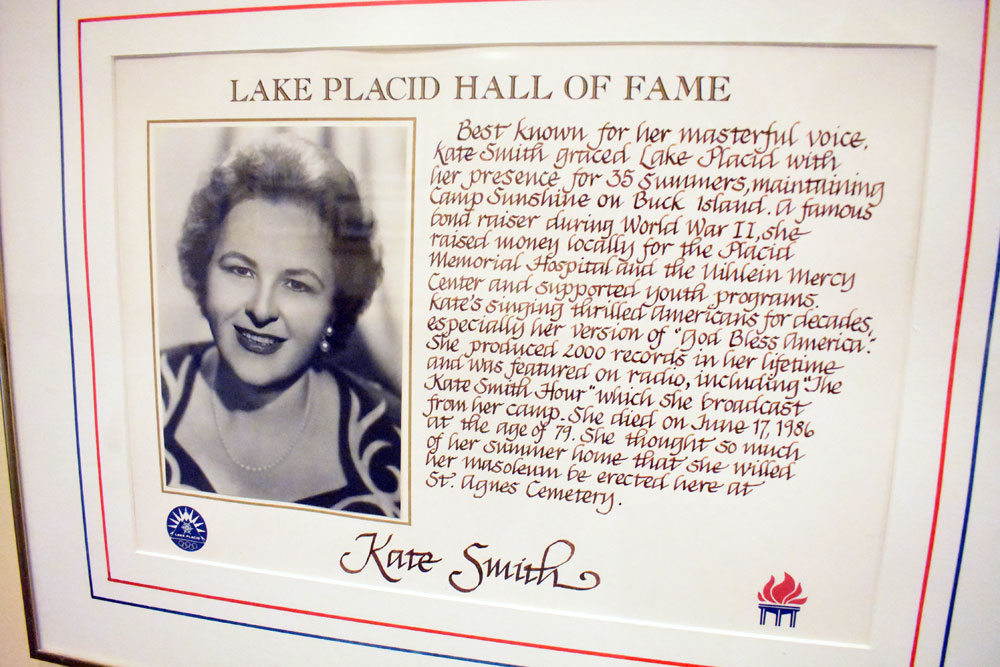 LAKE PLACID HALL OF FAME
Best known for her masterful voice,
Kate Smith graced Lake Placid with
her presence for 35 summers, maintaining
Camp Sunshine on Buck Island. A famous
bond raiser during World War II, she
raised money locally for the Placid
Memorial Hospital and the Uihlein Mercy
Center and supported youth programs.
Kate's singing thrilled Americans for decades,
especially her version of "God Bless America".
She produced 2000 records in her lifetime
and was featured on radio, including "The
Kate Smith Hour" which she broadcast
from her camp. She died on June 17, 1986
at the age of 79. She thought so much
of her summer home that she willed
her masoleum be erected here at
St. Agnes Cemetery.
LAKE PLACID
Kate Smith